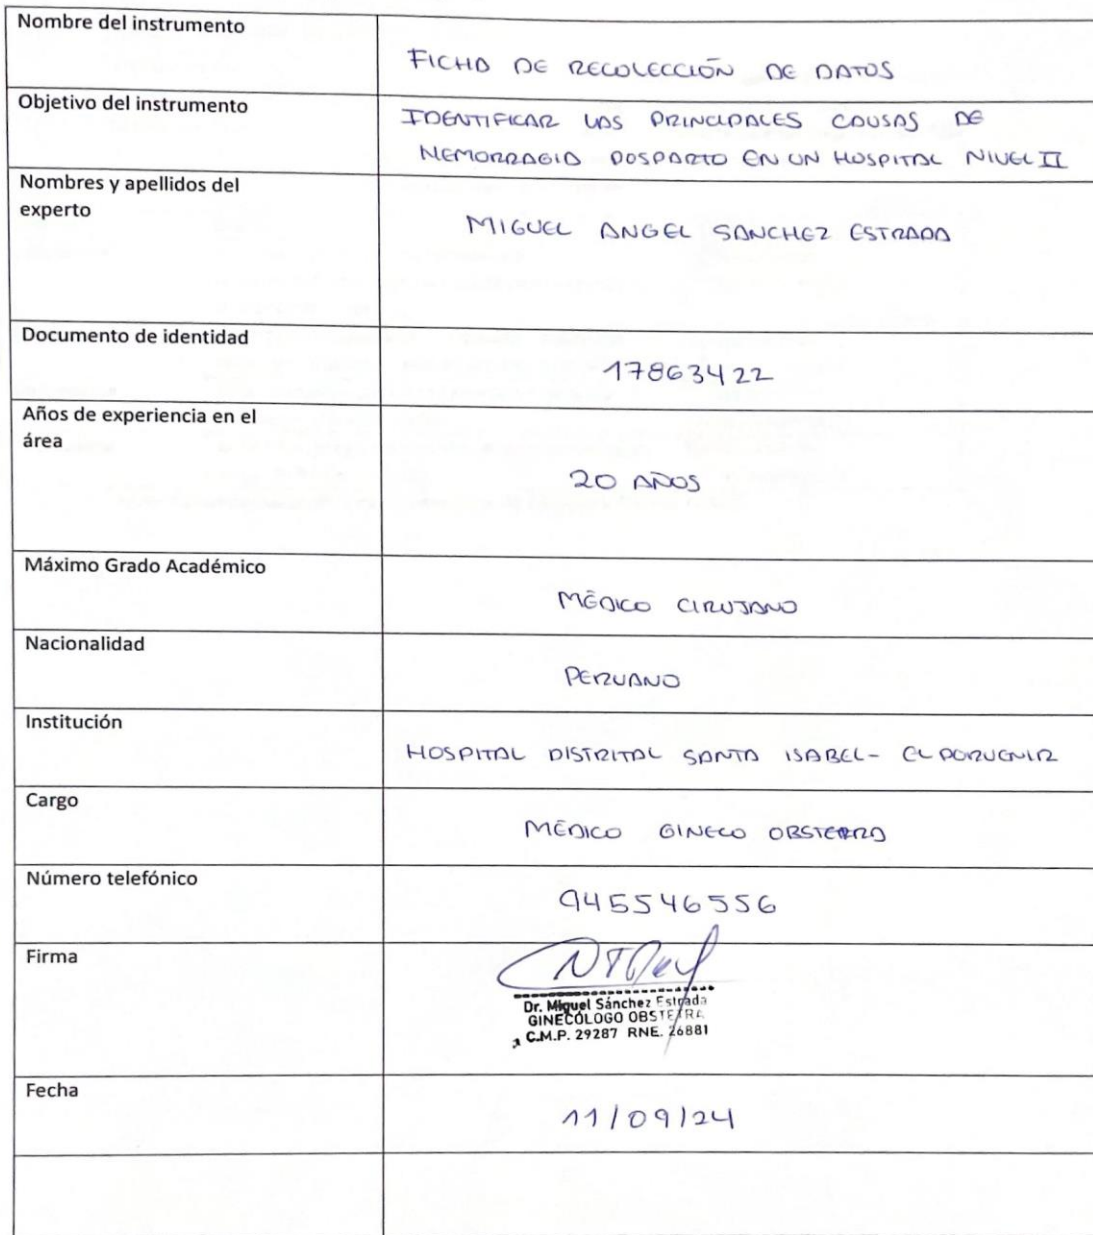 Nombre del instrumento
FICHA DE RECOLECCIÓN DE DATOS
Objetivo del instrumento
IDENTIFICAR LAS PRINCIPALES CAUSAS DE
HEMORRAGIA POSPARTO EN UN HOSPITAL NIVEL II
Nombres y apellidos del
experto
MIGUEL ANGEL SANCHEZ ESTRADA
Documento de identidad
17863422
Años de experiencia en el
área
20 AÑOS
Máximo Grado Académico
MÉDICO CIRUJANO
Nacionalidad
PERUANO
Institución
HOSPITAL DISTRITAL SANTA ISABEL- EL PORVENIR
Cargo
MÉDICO GINECO OBSTETRA
Número telefónico
945546556
Firma
Dr. Miguel Sánchez Estrada
GINECÓLOGO OBSTETRA
C.M.P. 29287 RNE. 26881
Fecha
11/09/24